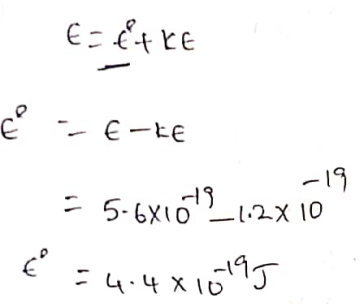 E = E° + KE
E° = E - KE
= 5.6 × 10⁻¹⁹ - 1.2 × 10⁻¹⁹
E° = 4.4 × 10⁻¹⁹ J